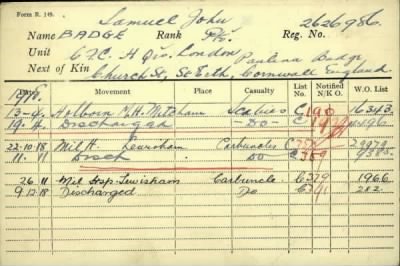 Form R. 149.
Samuel John
Name BADGE Rank Pte. Reg. No. 2626986
Unit C.F.C. H Qrs. London
Next of Kin Paulina Badge
Church St, St Erth, Cornwall England
Date Movement Place Casualty List No. Notified N/K O. W.O. List
1918.
13-4 Holborn M.H. Mitcham Scabies C190 16343
19. 4 Discharged - Do -
22-10-18 Mil. H. Lewisham Carbuncles C
11. 11 Disch Do C369
26 11 Mil Hosp. Lewisham Carbuncle C379 1966
9-12-18 Discharged Do 282